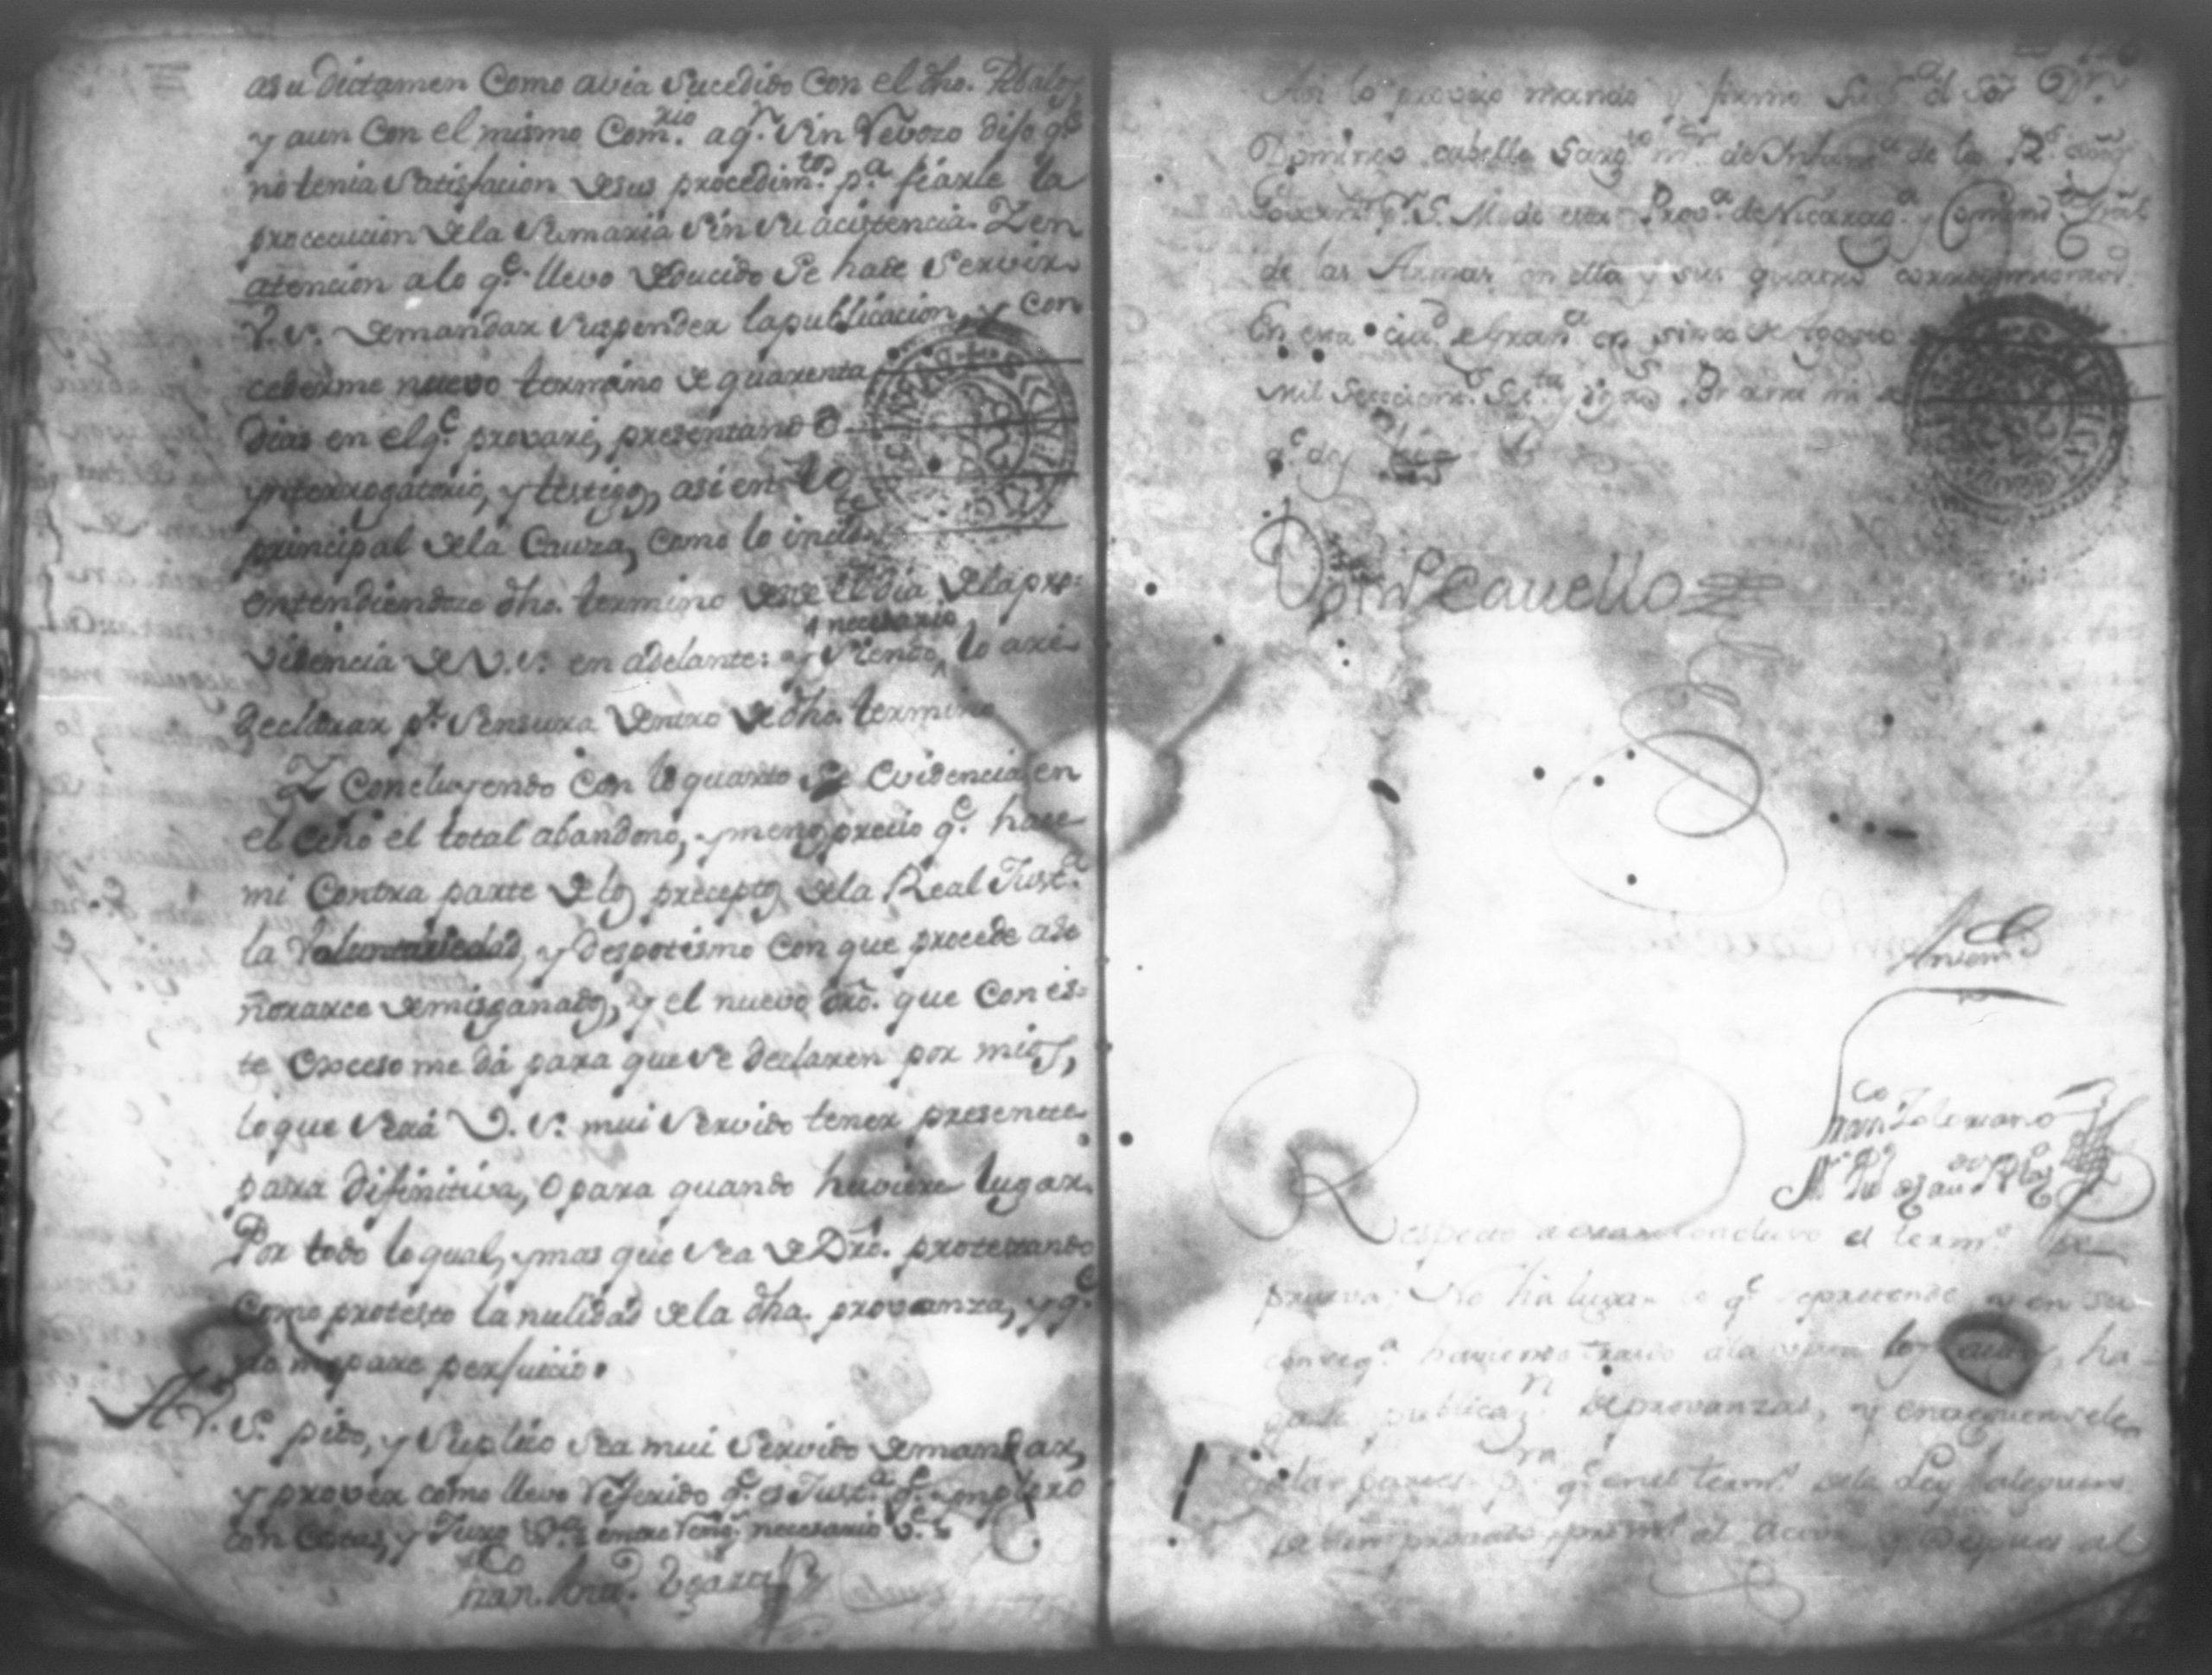 asu dictamen Como avia Sucedido Con el dho. 
y aun Con el mismo Com.rio aq.n Sin Revozo dijo q.e
no tenia Satisfacion desus procedim.tos p.a fiarle la
procecucion dela Sumaria Sin Su acistencia. Y en
atencion alo q.e llevo deducido Se hade Servir
V. S. demandar Suspender la publicacion, y con
cederme nuevo termino de quarenta
dias en elq.e provaré, presentando
ynterrogatorio, y testigos, asi en lo
principal dela Cauza, como lo incid.
entendiendose dho. termino desde el dia dela pro:
videncia de V. S. en adelante: y Siendo necesario lo aré
declarar p.r Sensura dentro de dho. termino
Y Concluyendo con lo quanto Se Evidencia en
el echo el total abandono, y menosprecio q.e hase
mi Contra parte delos preceptos dela Real Just.a
la Voluntariedad, y despotismo con que procede ade
ñorarce demis ganados, y el nuevo dro. que con es-
te Exceso me dá para que Se declaren por mios,
lo que Será V. S. mui Servido tener presente
para difinitiva, o para quando huviere lugar.
Por todo lo qual, y mas que Sea de Dro. protestando
Como protesto la nulidad dela dha. provanza, y q.e
no me pare perjuicio.
A V. S. pido, y Suplico Sea mui Servido demandar,
y proveer como llevo Referido q.e es Just.a q.e ymploro
con Costas, y Juro V.a entre Reng.s necesario V.e
Fran.co Anto. Ugarte
Asi lo proveio mando y firmo Su S.a el Sor D.n
Domingo cabello Sarg.to m.or de Infant.a de los R.s
Govern.or p.r S. M. de esta Prov.a de Nicarag.a y Comand.te Gral
de las Armas en ella y sus quatro corregimientos.
En esta ciud. de Gran.a en sinco de Agosto
mil Setecient.s Set.ta y por ante mi
q.e doy fee
Dom.o Cauello
Antem.
Fran.co Soleriano
Respecto a estar concluso el term.o de
prueva, No ha lugar lo q.e sepretende, y en su
conseq.a haviendo traido ala vista los autos, ha-
gase publicaz.n deprovanzas, y entreguensele
alas partes p.ra q.e en el term.o dela Ley aleguen
de bien provado, prim.o el Actor y despues el